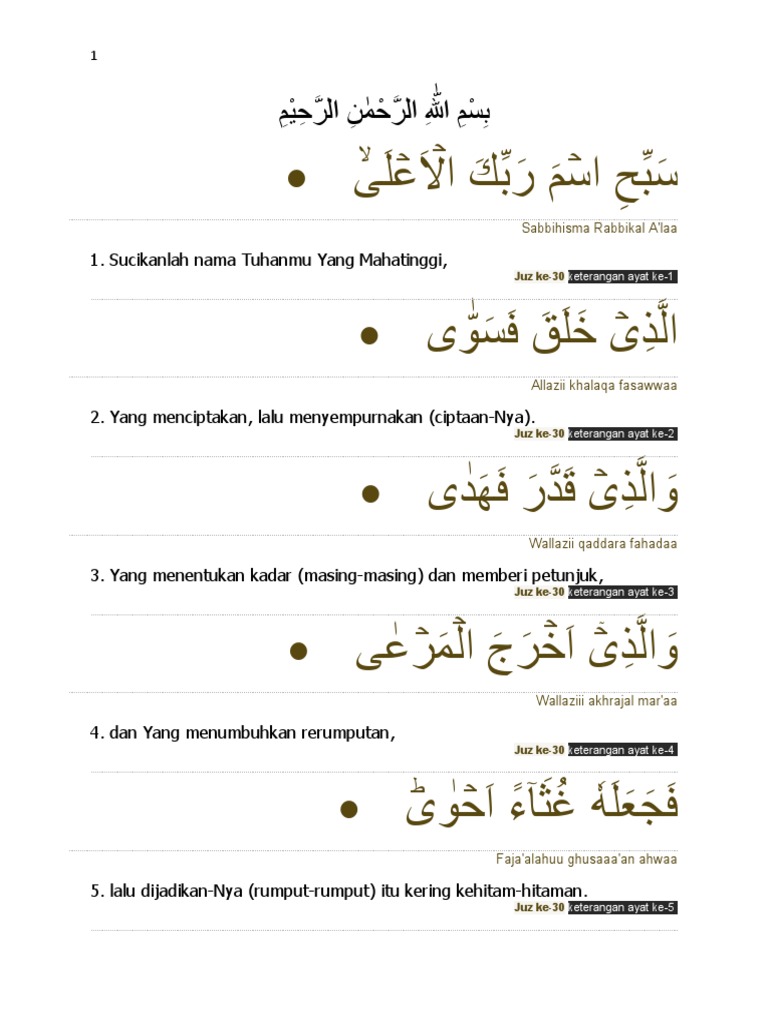 1
بِسْمِ اللّٰهِ الرَّحْمٰنِ الرَّحِيْمِ
سَبِّحِ اسْمَ رَبِّكَ الْاَعْلَىۙ ●
Sabbihisma Rabbikal A'laa
1. Sucikanlah nama Tuhanmu Yang Mahatinggi,
Juz ke-30 keterangan ayat ke-1
الَّذِيْ خَلَقَ فَسَوّٰى ●
Allazii khalaqa fasawwaa
2. Yang menciptakan, lalu menyempurnakan (ciptaan-Nya).
Juz ke-30 keterangan ayat ke-2
وَالَّذِيْ قَدَّرَ فَهَدٰى ●
Wallazii qaddara fahadaa
3. Yang menentukan kadar (masing-masing) dan memberi petunjuk,
Juz ke-30 keterangan ayat ke-3
وَالَّذِيْٓ اَخْرَجَ الْمَرْعٰى ●
Wallaziii akhrajal mar'aa
4. dan Yang menumbuhkan rerumputan,
Juz ke-30 keterangan ayat ke-4
فَجَعَلَهٗ غُثَاۤءً اَحْوٰىۗ ●
Faja'alahuu ghusaaa'an ahwaa
5. lalu dijadikan-Nya (rumput-rumput) itu kering kehitam-hitaman.
Juz ke-30 keterangan ayat ke-5